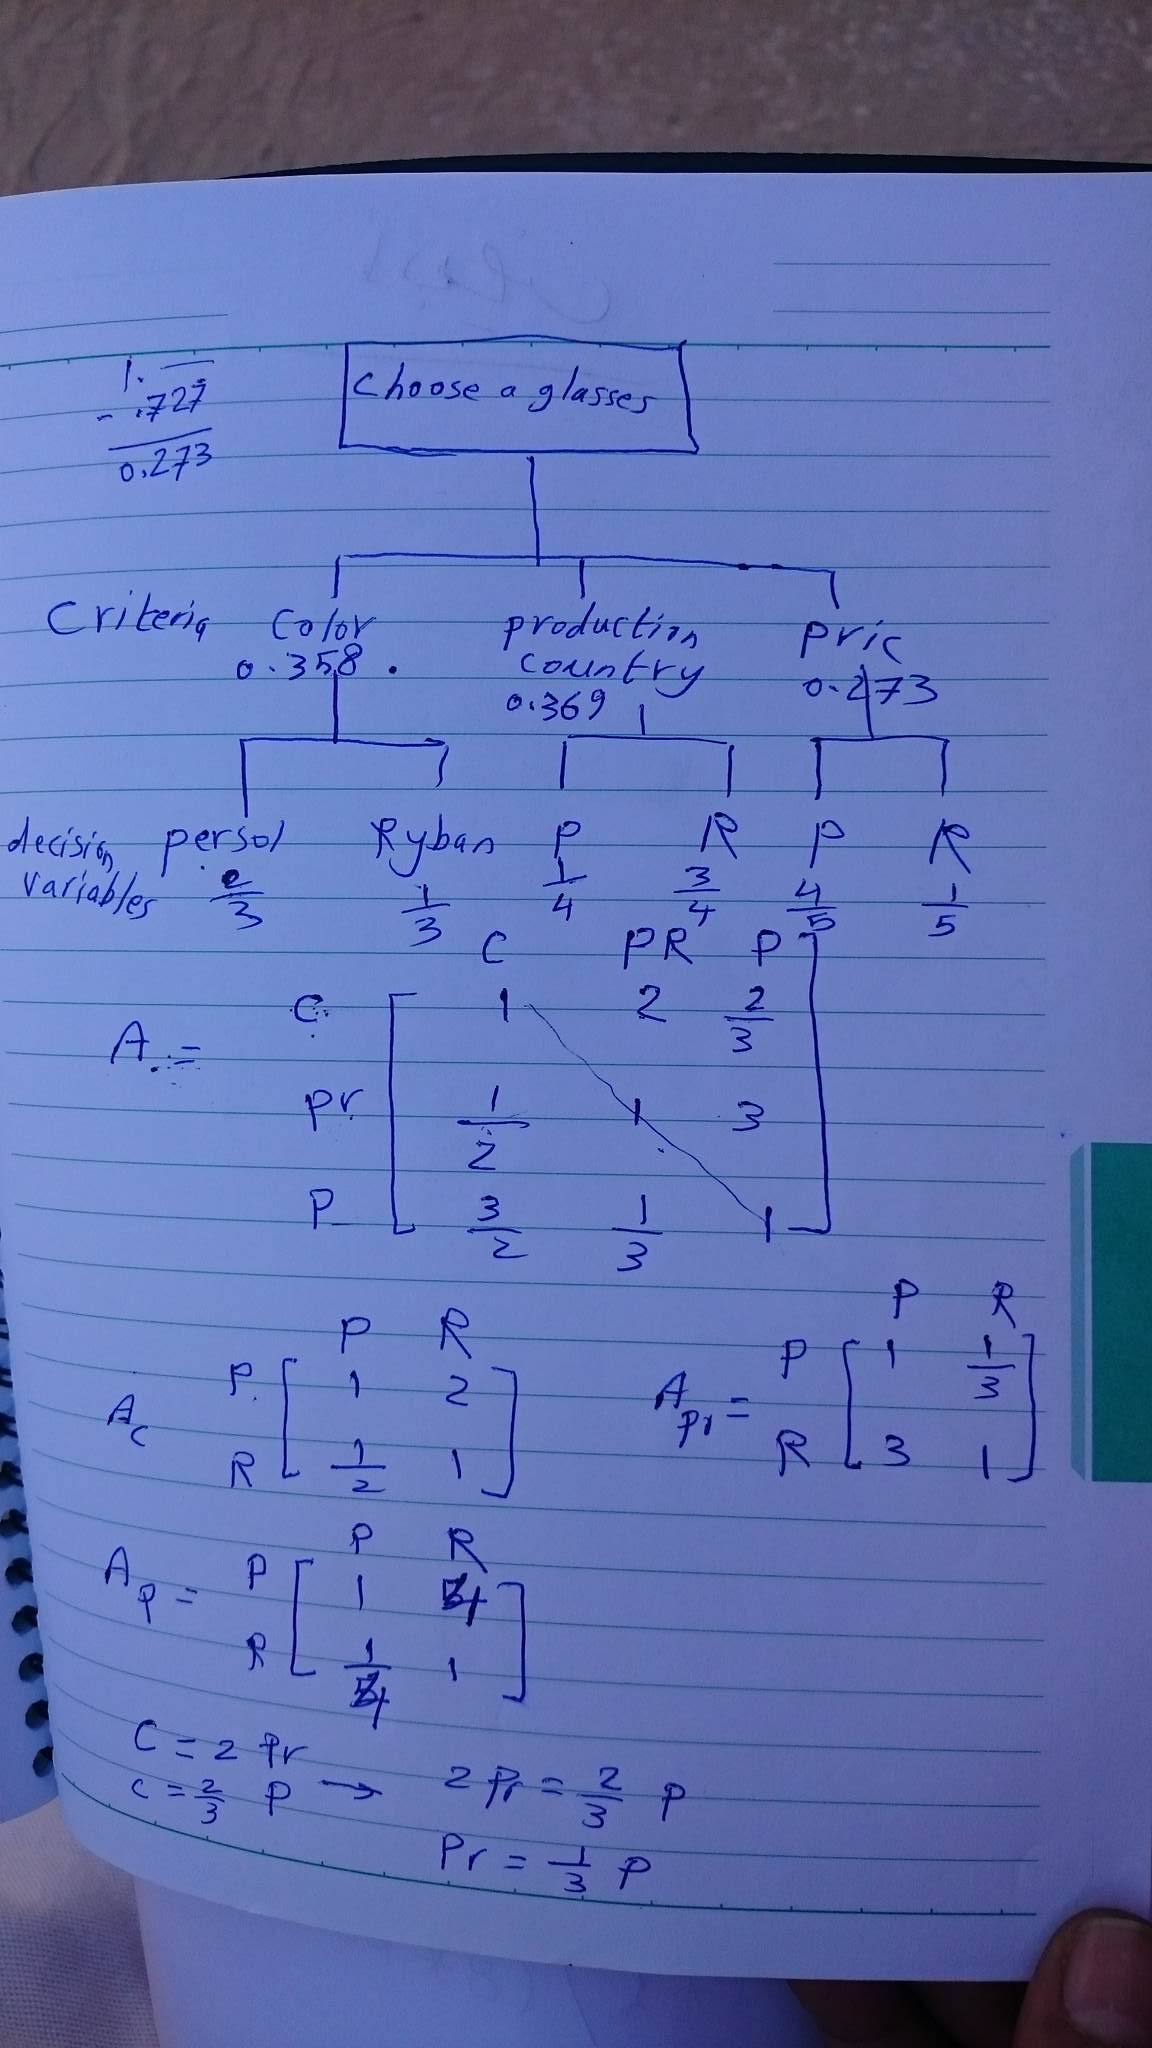 1.
- .727
0.273
Choose a glasses
Criteria Color production country pric
0.358 . 0.369 0.273
decision variables persol Ryban P R P R
2/3 1/3 1/4 3/4 4/5 1/5
C PR P
A = C 1 2 2/3
pr 1/2 1 3
P 3/2 1/3 1
P R
Ac P 1 2
R 1/2 1
P R
Apr = P 1 1/3
R 3 1
P R
Ap = P 1 4
R 1/4 1
C = 2 Pr
c = 2/3 P → 2 Pr = 2/3 P
Pr = 1/3 P